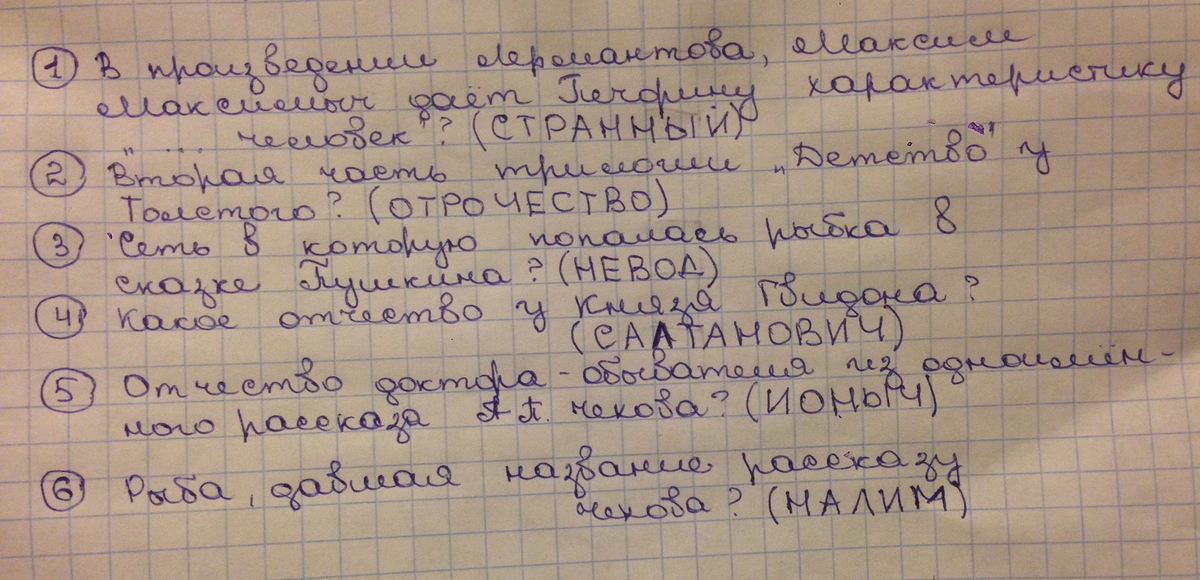 ① В произведении Лермантова, Максим
Максимыч даёт Печорину характеристику
„ ... человек"? (СТРАННЫЙ)
② Вторая часть трилогии „Детство" у
Толстого? (ОТРОЧЕСТВО)
③ Сеть в которую попалась рыбка в
сказке Пушкина? (НЕВОД)
④ Какое отчество у Князя Гвидона?
(СААТАНОВИЧ)
⑤ Отчество доктора-обывателя из одноимён-
ного рассказа А.П. Чехова? (ИОНЫЧ)
⑥ Рыба, давшая название рассказу
Чехова? (НАЛИМ)